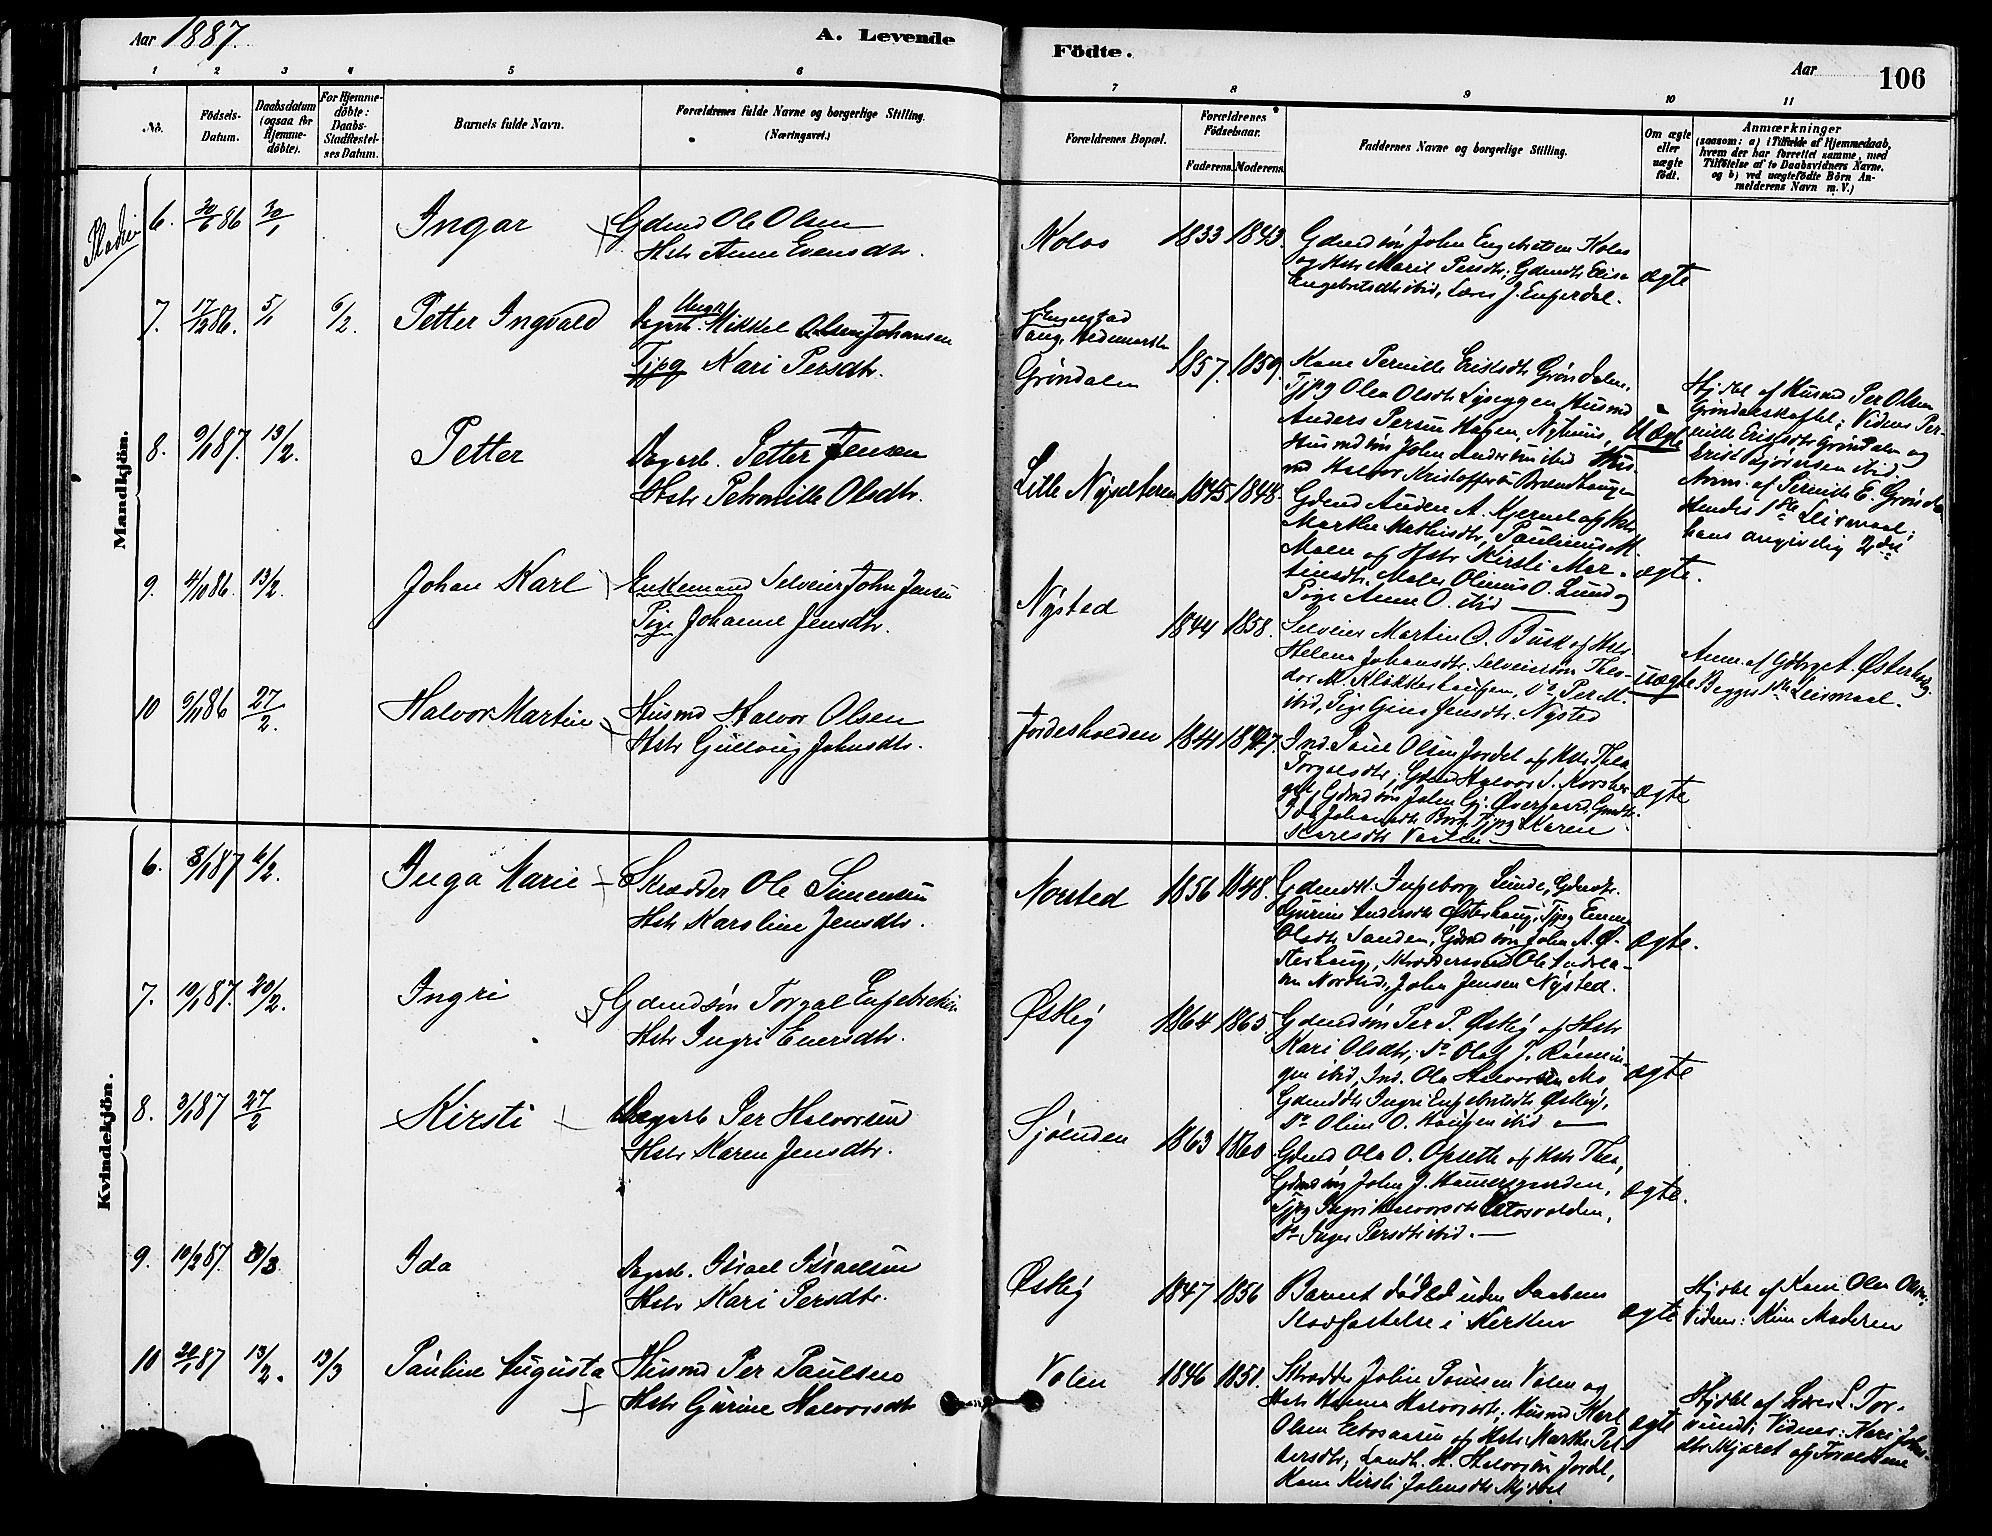 Aar 1887.
A. Levende
Födte.
Aar
106
1 2 3 4 5 6 7 8 9 10 11
No.
Födsels-Datum.
Daabsdatum (ogsaa for Hjemme-döbte).
For Hjemme-döbte: Daabs-Stadfæstel-ses Datum.
Barnets fulde Navn.
Forældrenes fulde Navne og borgerlige Stilling.
(Næringsvei.)
Forældrenes Bopæl.
Forældrenes Födselsaar.
Faderens. Moderens.
Faddernes Navne og borgerlige Stilling.
Om ægte eller uægte födt.
Anmærkninger
(saasom: a) i Tilfælde af Hjemmedaab,
hvem der har forrettet samme, med
Tilföielse af to Daabsvidners Navne.
og b) ved uægtefödte Börn An-
melderens Navn m. V.)
Mandkjön.
6. 30/6 86 30/1 Ingar Gdmd Ole Olsen
Hstr Anne Evensdtr.
Kolos 1833 1843.
Gdmdsön John Engebretsen Kolos
og Hstr Marit Persdtr; Gdmdtr Elise
Engebretsdtr ibid, Lærer J. Engerdal.
ægte
7. 17/12 86. 5/1 6/2. Petter Ingvald Dagarb. Ungk Mikkel Johansen
Tjpg Kari Persdtr.
Vang, Hedemarken
Gröndalen 1857. 1859.
Kone Pernille Eriksdtr Gröndalen,
Tjpg Olea Olsdtr Lyseggen, Husmd
Anders Persen Hagen, Nyhuus,
Husmdsön John Andersen ibid Hus-
md Halvor Kristoffersen Brændhaugen
Uægte
Hjdbt af Husmd Per Olsen
Gröndalskoftet; Vidner Per-
nille Eriksdtr Gröndalen og
Erik Bjørnsen ibid
Anm. af Pernille E. Gröndalen
Hendes 1ste Leiermaal;
hans angivelig 2det
8. 9/1 87. 13/2. Petter Dagarb. Petter Jensen
Hstr Pernille Olsdtr.
Lille Nysæteren 1845 1848.
Gdmd Auden A. Kjernet og Hstr
Marthe Mathisdtr, Paulinus M.
Moen og Hstr Kirsti Mar-
tinsdtr. Maler Olinus O. Lund og
Pige Anne O. ibid
ægte.
9. 4/10 86. 13/2. Johan Karl Enkemand Selveier John Jensen
Pige Johanne Jensdtr.
Nysted 1844 1858.
Selveier Martin O. Busk og Hstr
Helene Johansdtr. Selveiersön Theo-
dor M. Klokkerhaugen, Do Per M.
ibid, Pige Jensdtr. Nysted
uægte
Anm. af Gdbrg A. Østerhaug.
Begges 1ste Leiermaal.
10 9/11 86 27/2. Halvor Martin Husmd Halvor Olsen
Hstr Gullaug Johnsdtr.
Jordesholden 1841 1847.
Ind. Povel Olsen Jordet og Hstr Thea
Torgalsdtr; Gdmd Halvor S. Korsber-
get, Gdmdsön John Gj. Øvergaard, Gmdtr.
Ida Johansdtr Bort, Tjpg Karen
Karlsdtr
ægte
Kvindekjön.
6. 3/1 87 6/2. Inga Marie Skrædder Ole Simensen
Hstr Karoline Jensdtr.
Norsted 1856 1848.
Gdmdsk. Ingeborg Lunde, Gdmdtr.
Gurine Andersdtr Østerhaug, Tjpg Emma
Olsdtr Sanden, Gdmdsön John A. Ø-
sterhaug, Skræddersvend Ole Andrea-
sen Norsted, John Jensen Nysted.
ægte.
7. 10/1 87. 20/2. Ingri Gdmdsön Torgal Engebretsen
Hstr Ingri Enersdtr.
Østby 1864 1865
Gdmdsön Per P. Østby og Hstr
Kari Olsdtr; Do Olof J. Rönnin-
gen ibid, Ind. Ole Halvorsen Mo,
Gdmddtr Ingri Engebretsdtr Østby,
Do Oline O. Haugen ibid
ægte
8. 3/1 87 27/2 Kirsti Dagarb Per Halvorsen
Hstr Karen Jensdtr.
Sjöenden 1863 1860
Gdmd Ole O. Opseth og Hstr Thea,
Gdmdsön John J. Hammersgarden,
Tjpg Ingri Halvorsdtr
Do Inger Persdtr ibid.
ægte.
9. 10/2 87. 8/3 Ida Dagarb. Israel Israelsen
Hstr Kari Persdtr.
Østby 1847 1856
Barnet döde uden Daabens
Stadfæstelse i Kirken
ægte
Hjdbt af Kone Olea Olsen;
Vidne: Kun Moderen
10 87 13/2. 13/3 Pauline Augusta Husmd Per Paulsen
Hstr Gurine Halvorsdtr
Volen 1846 1851.
Skrædder John Poulsen Volen og
Hstr Hanna Halvorsdtr, Husmd Karl
Olsen og Hstr Marthe Pet-
tersdtr, Landh. H. Halvorsen Jordet,
Kone Kirsti Johnsdtr
ægte
Hjdbt af Lærer L. Tor-
sund; Vidner: Kari Johns-
dtr Kjæret og Forældrene